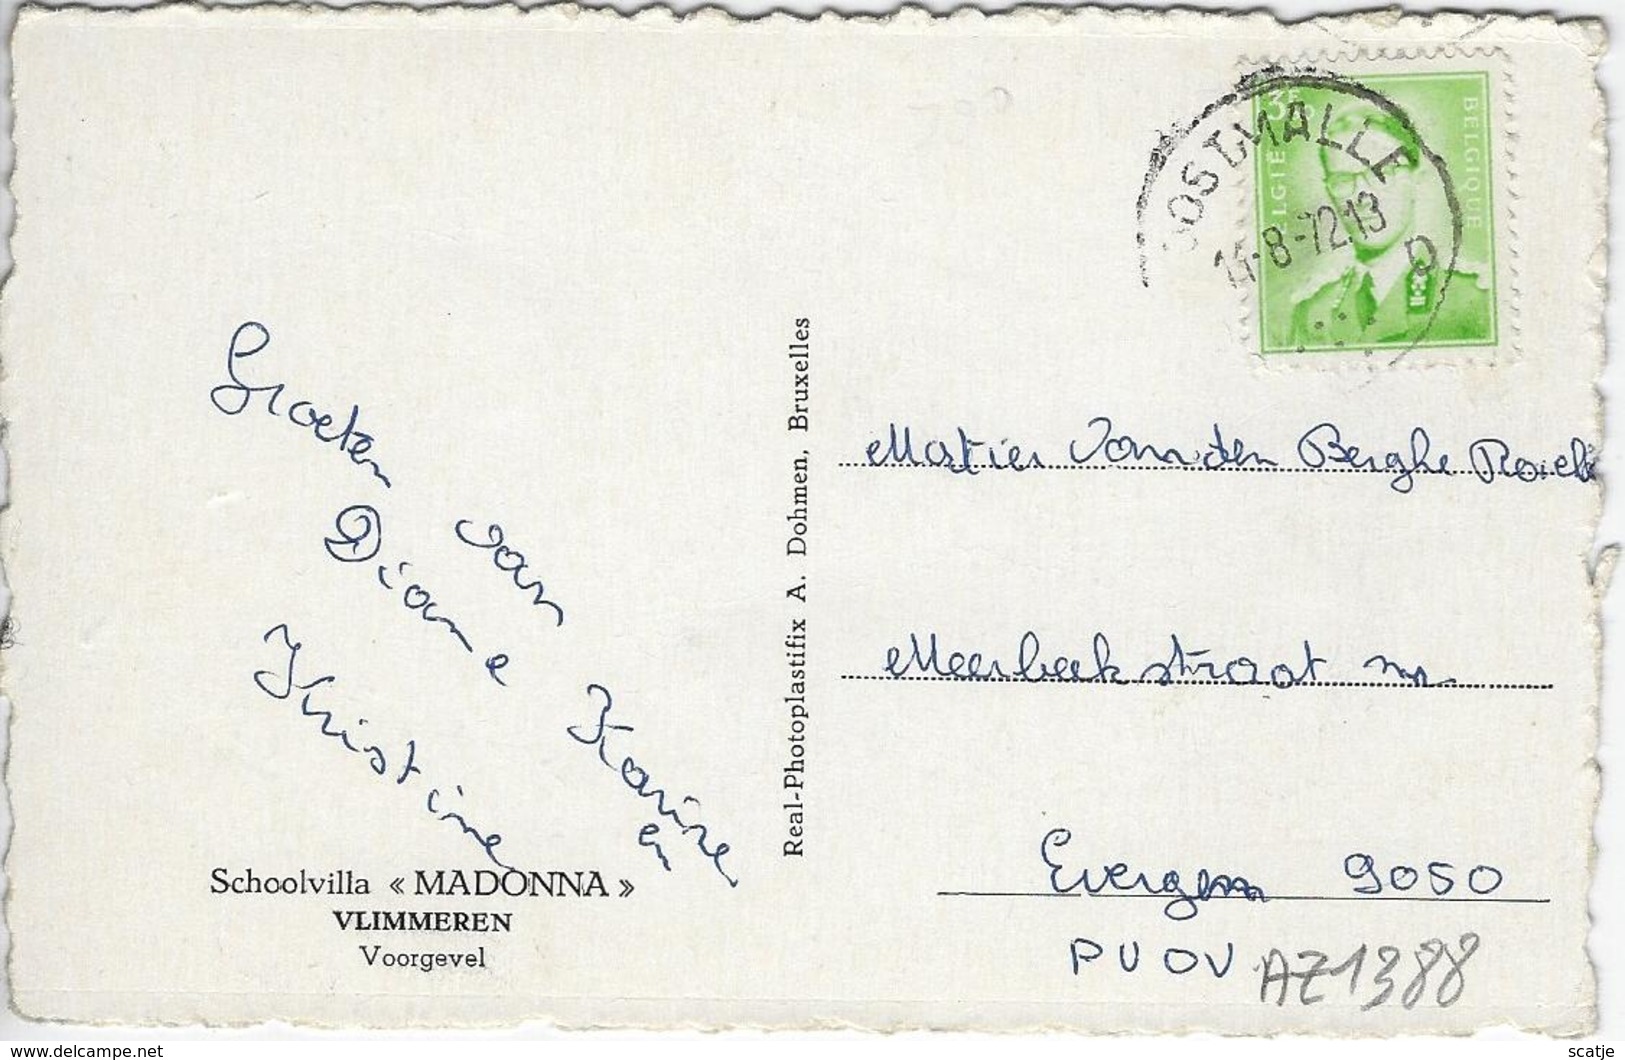 OOSTMALLE
-8-72.13
D
3F
BELGIË
BELGIQUE
Groeten van
Diane Karine
en
Kristine
Schoolvilla « MADONNA »
VLIMMEREN
Voorgevel
Real-Photoplastifix A. Dohmen, Bruxelles
Van den Berghe
Meerbeekstraat nr
Evergem 9050
AZ1388
delcampe.net
scatje